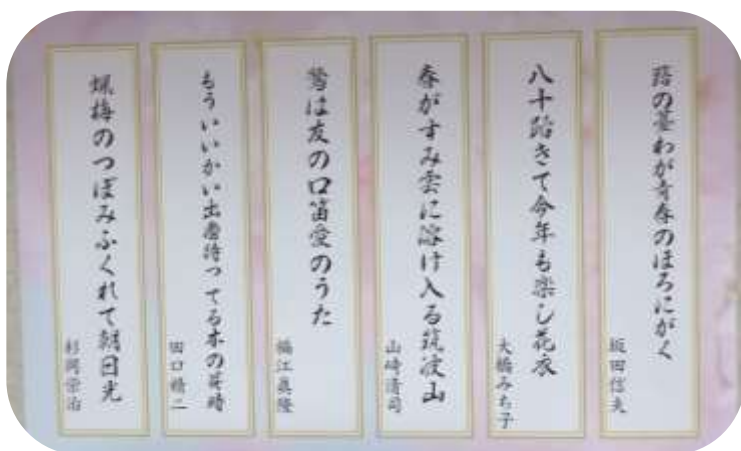 蕗の薹わが青春のほろにがく
坂田信夫
八十路きて今年も楽し花衣
大橋みち子
春がすみ雲に溶け入る筑波山
山崎清司
鶯は友の口笛愛のうた
堀江眞隆
もういいかい出番待ってる木の芽時
田口精二
蝋梅のつぼみふくれて朝日光
杉岡栄治